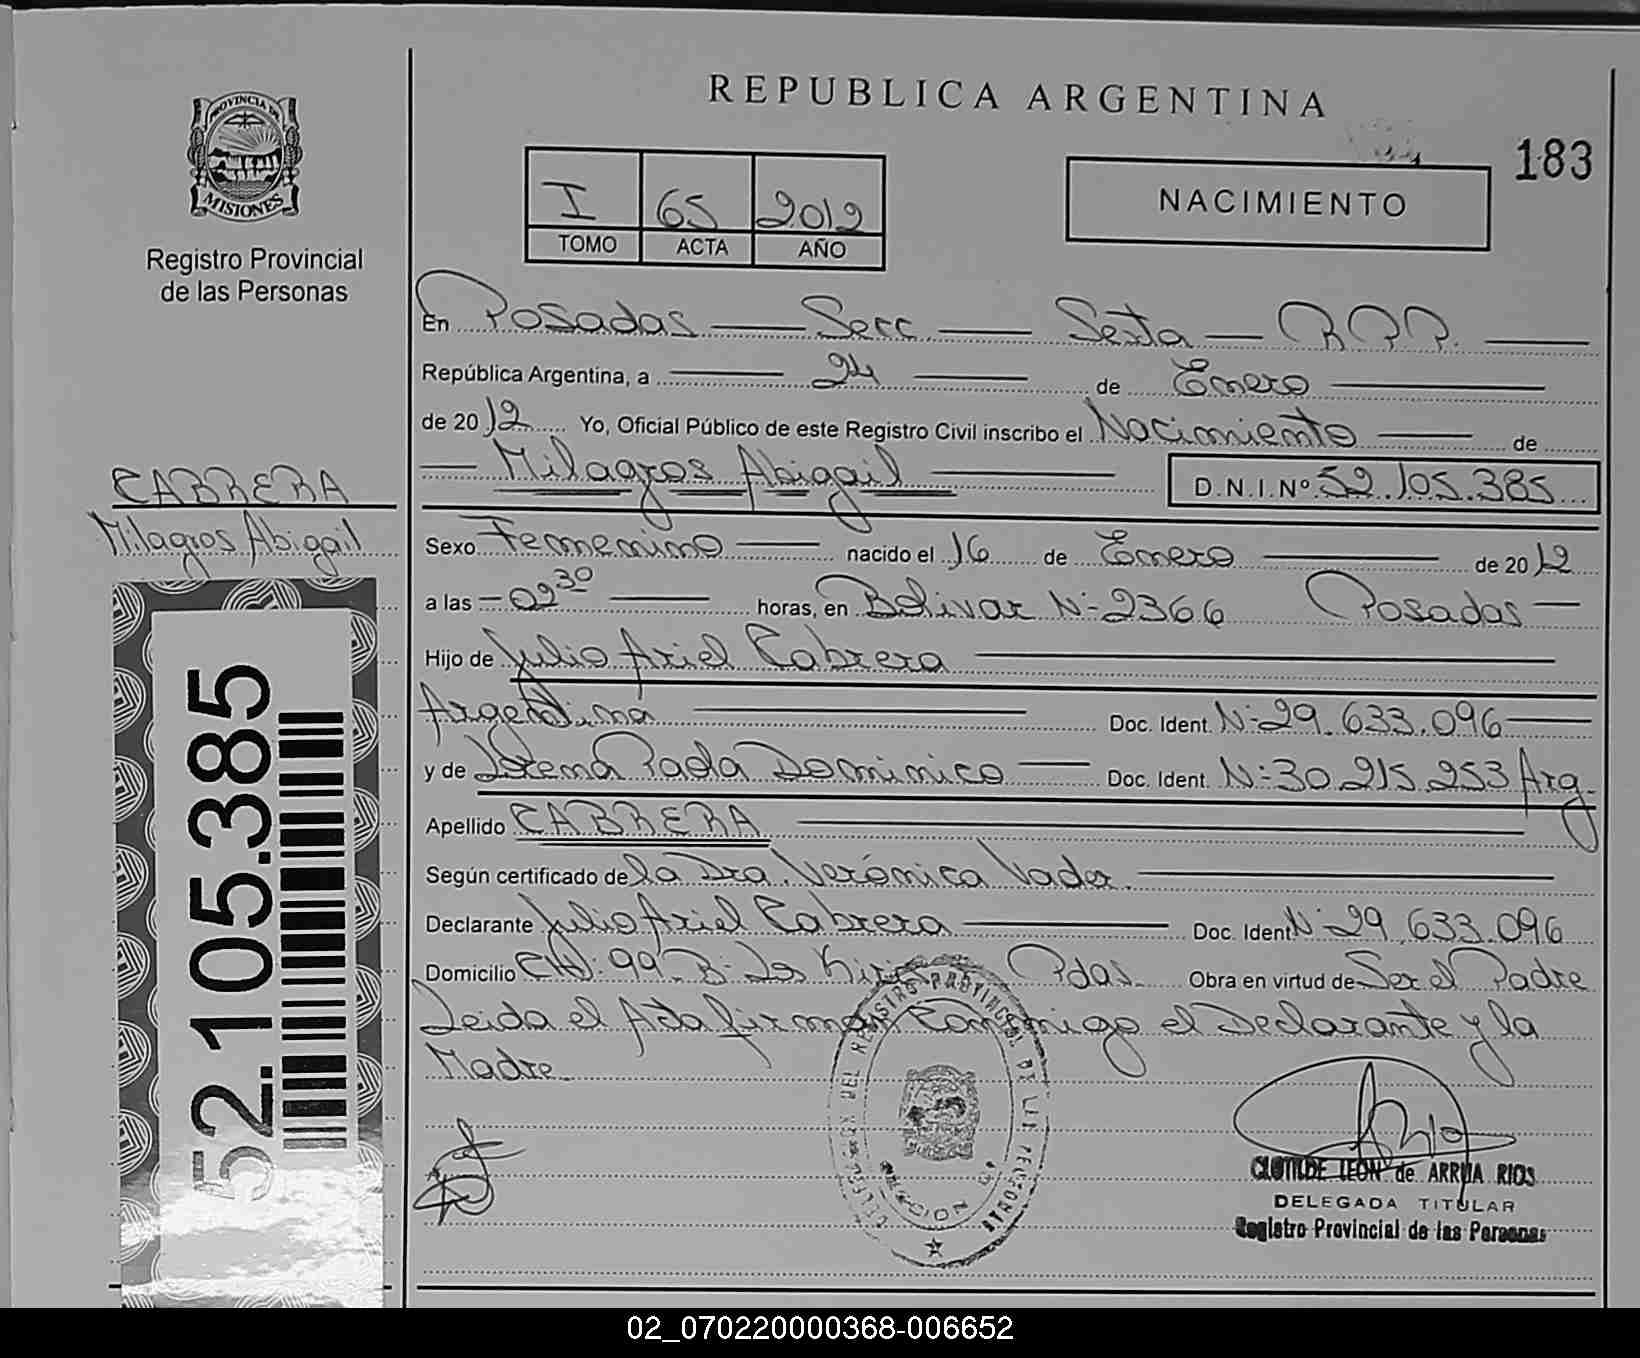 REPUBLICA ARGENTINA
183
PROVINCIA DE
MISIONES
Registro Provincial
de las Personas
I 65 2012
TOMO ACTA AÑO
NACIMIENTO
En Posadas Secc. Sexta R.P.P.
República Argentina, a 24 de Enero
de 2012 Yo, Oficial Público de este Registro Civil inscribo el Nacimiento de
Milagros Abigail D.N.I.Nº 52.105.385
CABRERA
Milagros Abigail
Sexo Femenino nacido el 16 de Enero de 2012
a las 02 30 horas, en Bolivar Nº 2366 Posadas
Hijo de Julio Ariel Cabrera
Argentina Doc. Ident. Nº 29.633.096
y de Paola Dominico Doc. Ident. Nº 30.215.253 Arg.
Apellido CABRERA
Según certificado de la Dra. Verónica
Declarante Julio Ariel Cabrera Doc. Ident Nº 29.633.096
Domicilio 99 Bº Los Pdas. Obra en virtud de Ser el Padre
Leida el Acta firman conmigo el Declarante y la
Madre.
52.105.385
REGISTRO PROVINCIAL DE LAS PERSONAS
CLOTILDE LEON de ARRUA RIOS
DELEGADA TITULAR
Registro Provincial de las Personas
02_070220000368-006652